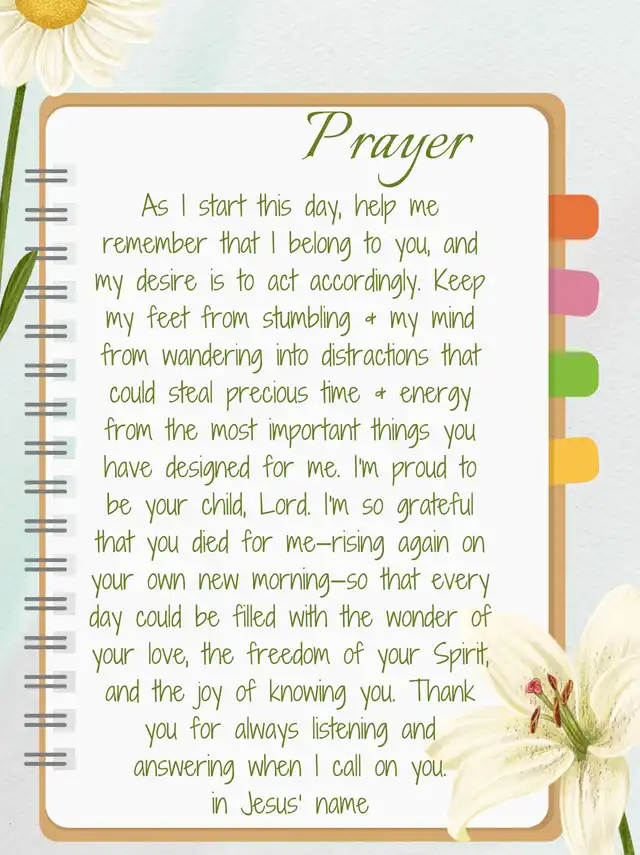 Prayer
As I start this day, help me
remember that I belong to you, and
my desire is to act accordingly. Keep
my feet from stumbling & my mind
from wandering into distractions that
could steal precious time & energy
from the most important things you
have designed for me. I'm proud to
be your child, Lord. I'm so grateful
that you died for me—rising again on
your own new morning—so that every
day could be filled with the wonder of
your love, the freedom of your Spirit,
and the joy of knowing you. Thank
you for always listening and
answering when I call on you.
in Jesus' name